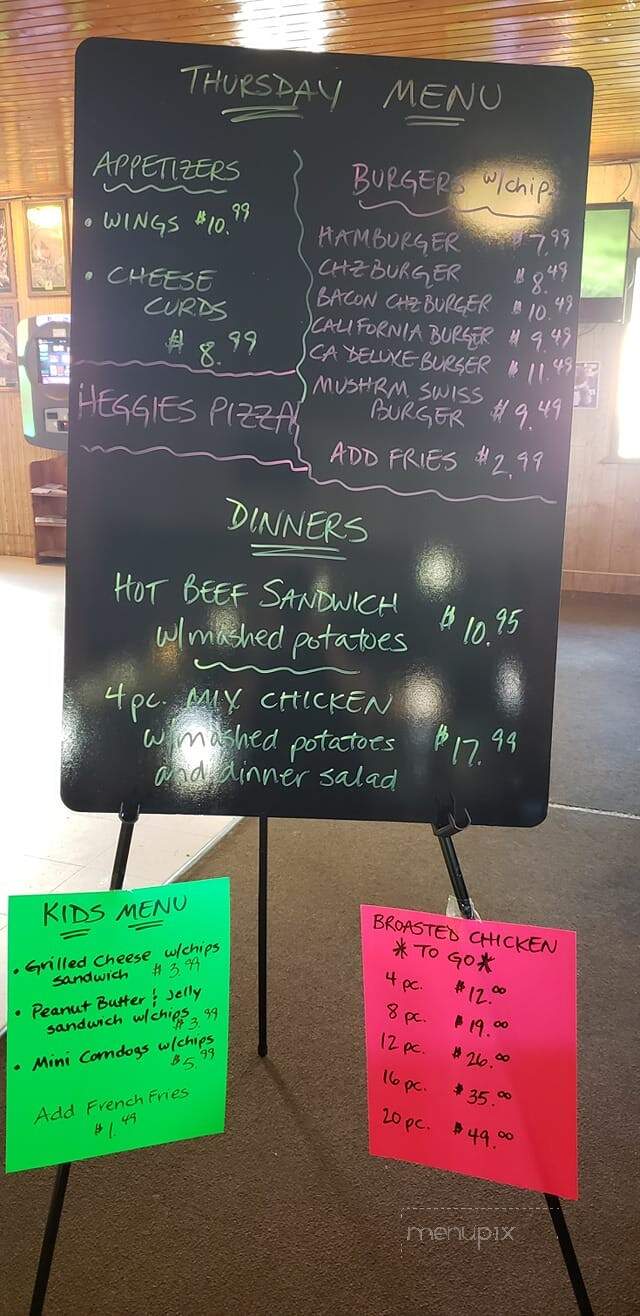 THURSDAY MENU
APPETIZERS
• WINGS $10.99
• CHEESE
CURDS
$8.99
HEGGIES PIZZA
BURGERS w/chips
HAMBURGER $7.99
CHZBURGER $8.49
BACON CHZBURGER $10.49
CALIFORNIA BURGER $9.49
CA DELUXE BURGER $11.49
MUSHRM SWISS
BURGER $9.49
ADD FRIES $2.99
DINNERS
HOT BEEF SANDWICH
w/mashed potatoes $10.95
4 pc. MIX CHICKEN
w/mashed potatoes $17.99
and dinner salad
KIDS MENU
• Grilled Cheese w/chips
sandwich $3.99
• Peanut Butter & Jelly
sandwich w/chips
$3.99
• Mini Corndogs w/chips
$5.99
Add French Fries
$1.49
BROASTED CHICKEN
*TO GO*
4 pc. $12.00
8 pc. $19.00
12 pc. $26.00
16 pc. $35.00
20 pc. $49.00
menupix